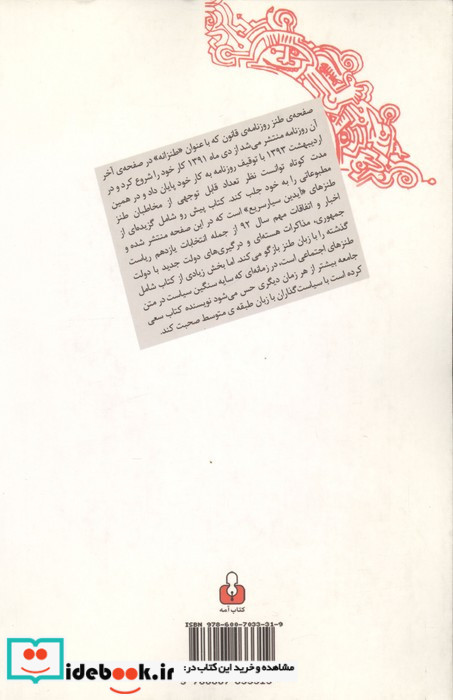 صفحه‌ی طنز روزنامه‌ی قانون که با عنوان «طنزانه» در صفحه‌ی آخر
آن روزنامه منتشر می‌شد از دی ماه ۱۳۹۱ کار خود را شروع کرد و در
اردیبهشت ۱۳۹۳ با توقیف روزنامه به کار خود پایان داد و در همین
مدت کوتاه توانست نظر تعداد قابل توجهی از مخاطبان طنز
مطبوعاتی را به خود جلب کند. کتاب پیش رو شامل گزیده‌ای از
طنزهای «آیدین سیارسریع» است که در این صفحه منتشر شده و
اخبار و اتفاقات مهم سال ۹۲ از جمله انتخابات یازدهم ریاست
جمهوری، مذاکرات هسته‌ای و درگیری‌های دولت جدید با دولت
گذشته را با زبان طنز بازگو می‌کند. اما بخش زیادی از کتاب شامل
طنزهای اجتماعی است، در زمانه‌ای که سایه سنگین سیاست در متن
جامعه بیشتر از هر زمان دیگری حس می‌شود نویسنده کتاب سعی
کرده است با سیاست‌گذاران با زبان طبقه‌ی متوسط صحبت کند.
کتاب آمه
ISBN 978-600-7033-31-9
مشاهده و خرید این کتاب در:
idebook.ir